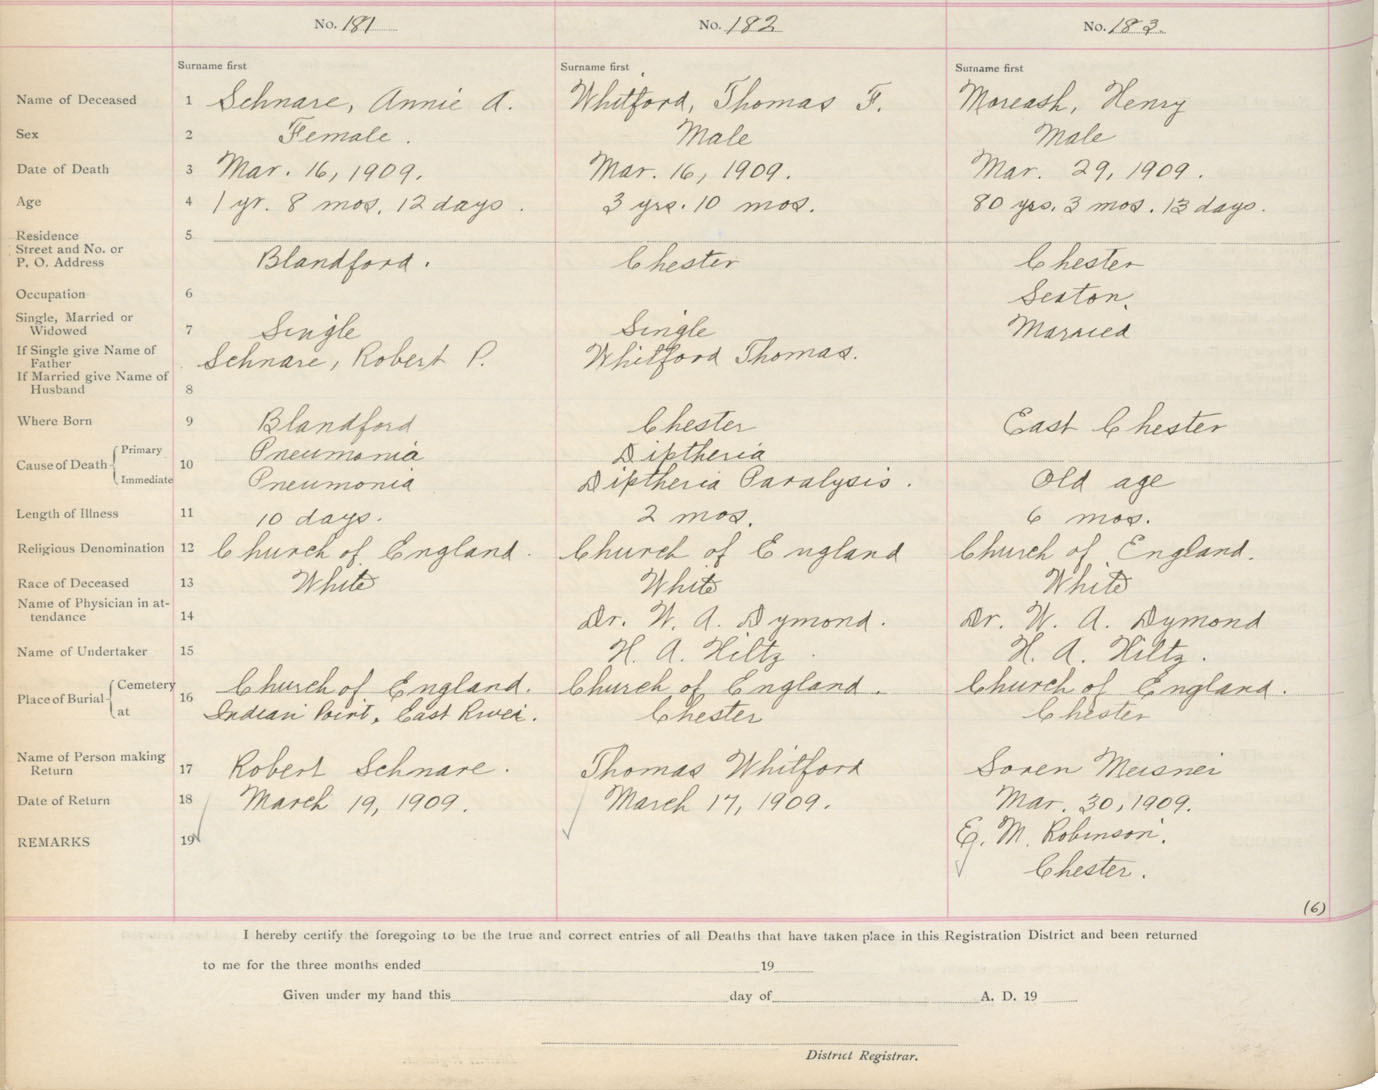 No. 181 No. 182 No. 183.
Surname first Surname first Surname first
Name of Deceased 1 Schnare, Annie A. Whitford, Thomas F. Moreash, Henry
Sex 2 Female. Male Male
Date of Death 3 Mar. 16, 1909. Mar. 16, 1909. Mar. 29, 1909.
Age 4 1 yr. 8 mos. 12 days. 3 yrs. 10 mos. 80 yrs. 3 mos. 13 days.
Residence 5
Street and No. or
P. O. Address Blandford. Chester Chester
Occupation 6 Sexton.
Single, Married or
Widowed 7 Single Single Married
If Single give Name of
Father Schnare, Robert P. Whitford Thomas.
If Married give Name of
Husband 8
Where Born 9 Blandford Chester East Chester
Cause of Death 10 Primary Pneumonia Diptheria
Immediate Pneumonia Diptheria Paralysis. Old age
Length of Illness 11 10 days. 2 mos. 6 mos.
Religious Denomination 12 Church of England. Church of England Church of England.
Race of Deceased 13 White White White
Name of Physician in at-
tendance 14 Dr. W. A. Dymond. Dr. W. A. Dymond
Name of Undertaker 15 H. A. Hiltz. H. A. Hiltz.
Place of Burial 16 Cemetery Church of England. Church of England. Church of England.
at Indian Point, East River. Chester Chester
Name of Person making
Return 17 Robert Schnare. Thomas Whitford Soren Meisner
Date of Return 18 March 19, 1909. March 17, 1909. Mar. 30, 1909.
REMARKS 19 E. M. Robinson.
Chester.
(6)
I hereby certify the foregoing to be the true and correct entries of all Deaths that have taken place in this Registration District and been returned
to me for the three months ended 19
Given under my hand this day of A. D. 19
District Registrar.